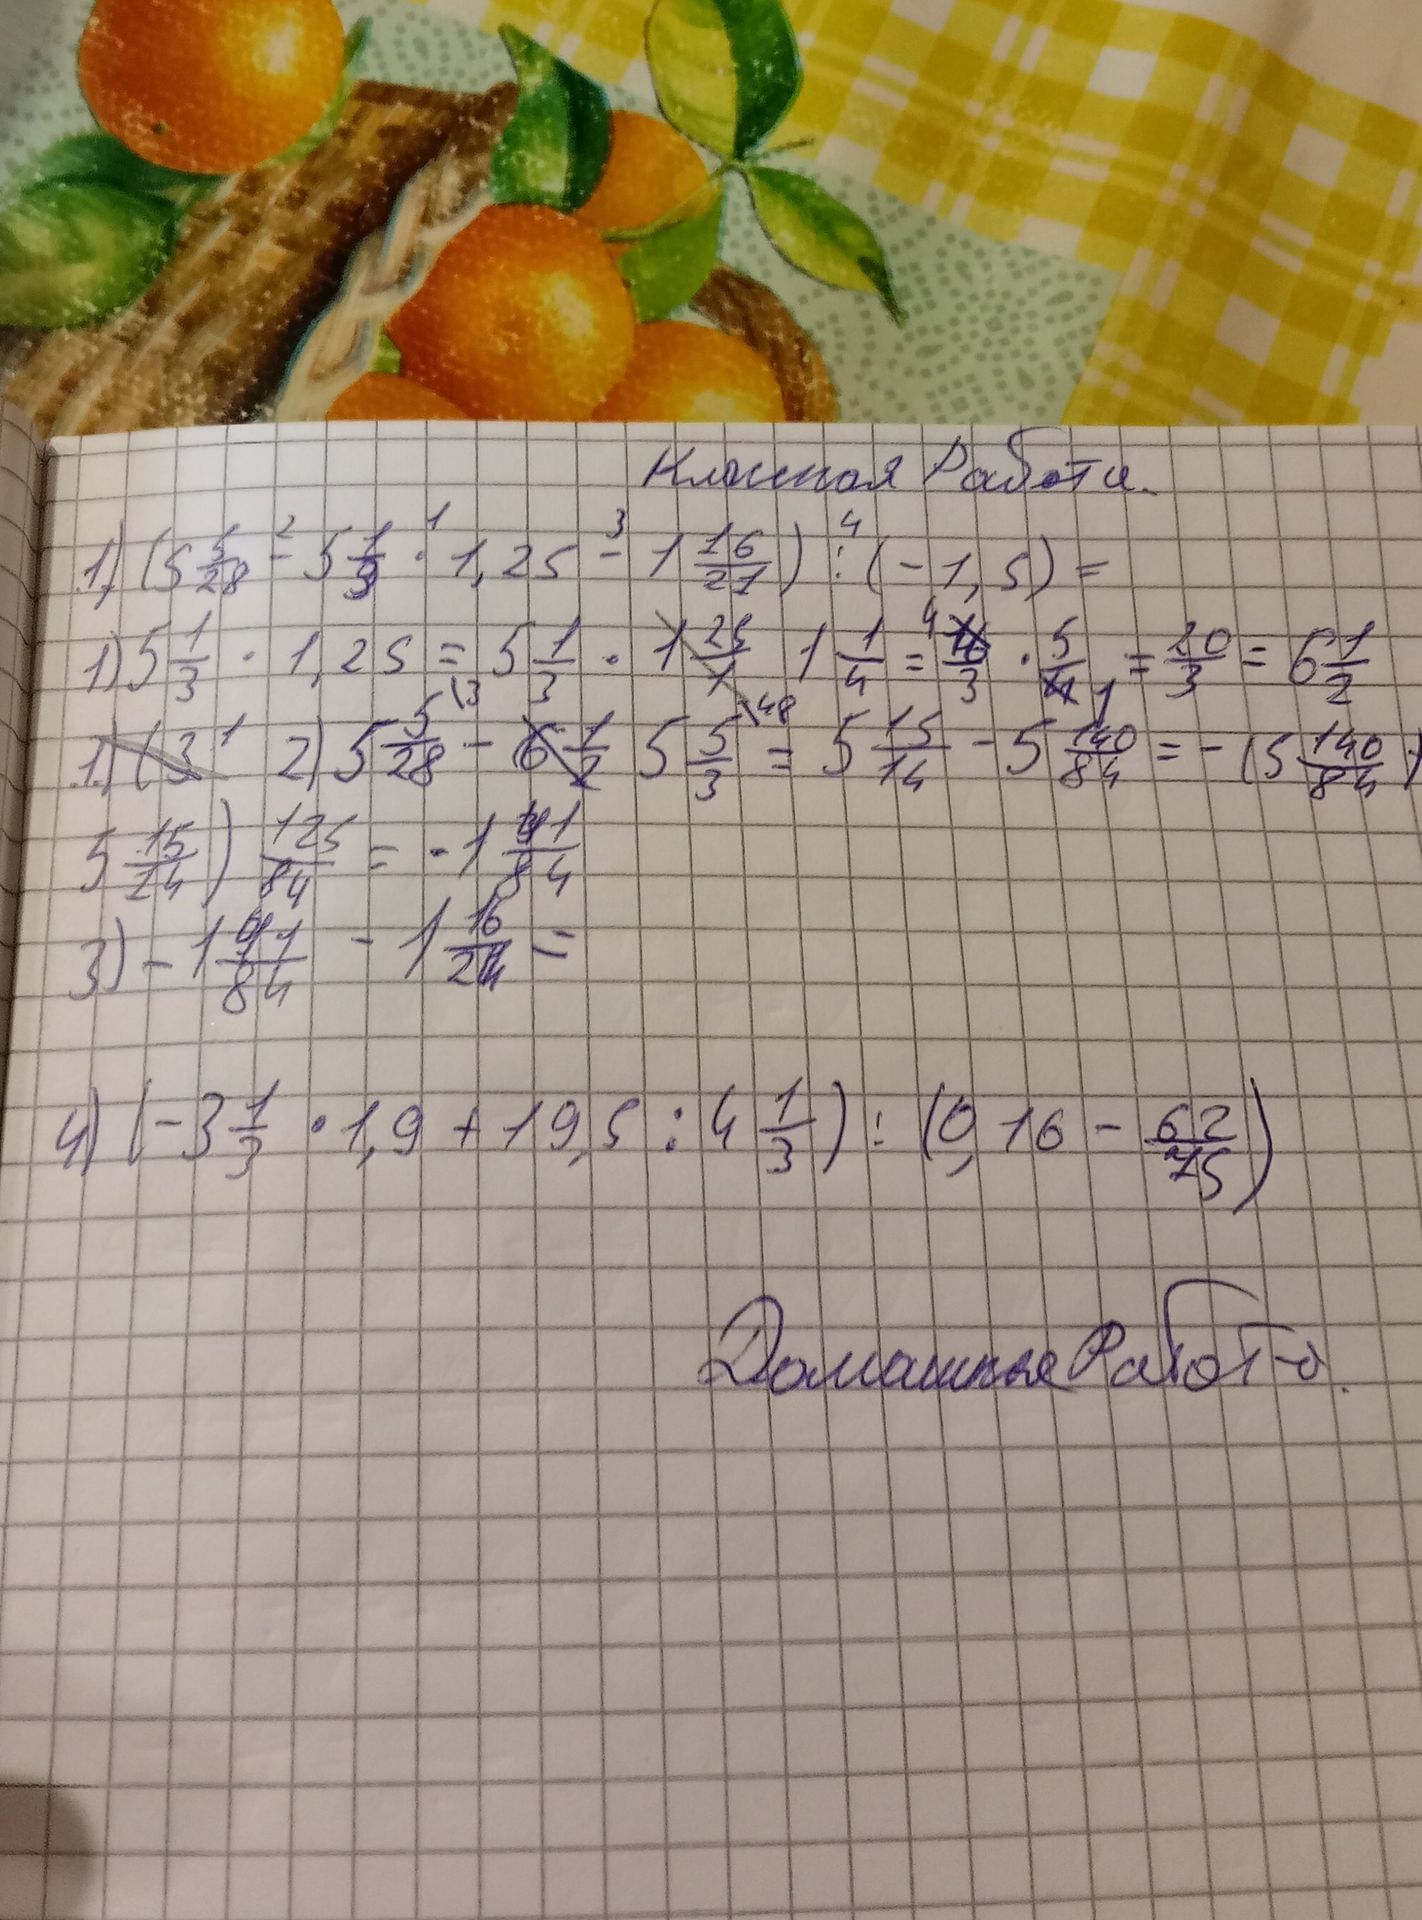 Классная Работа.
1) (5 5/28 - 5 1/3 · 1,25 - 1 16/21) : (-1,5) =
1) 5 1/3 · 1,25 = 5 1/3 · 1 25/1 1 1/4 = 16/3 · 5/4 = 20/3 = 6 1/2
1) (3 2) 5 5/28 - 6 1/2 5 5/3 = 5 15/14 - 5 140/84 = - (5 140/84
5 15/14) 125/84 = -1 41/84
3) -1 41/84 - 1 16/21 =
4) (-3 1/3 · 1,9 + 19,5 : 4 1/3) : (0,16 - 62/75)
Домашняя Работа.